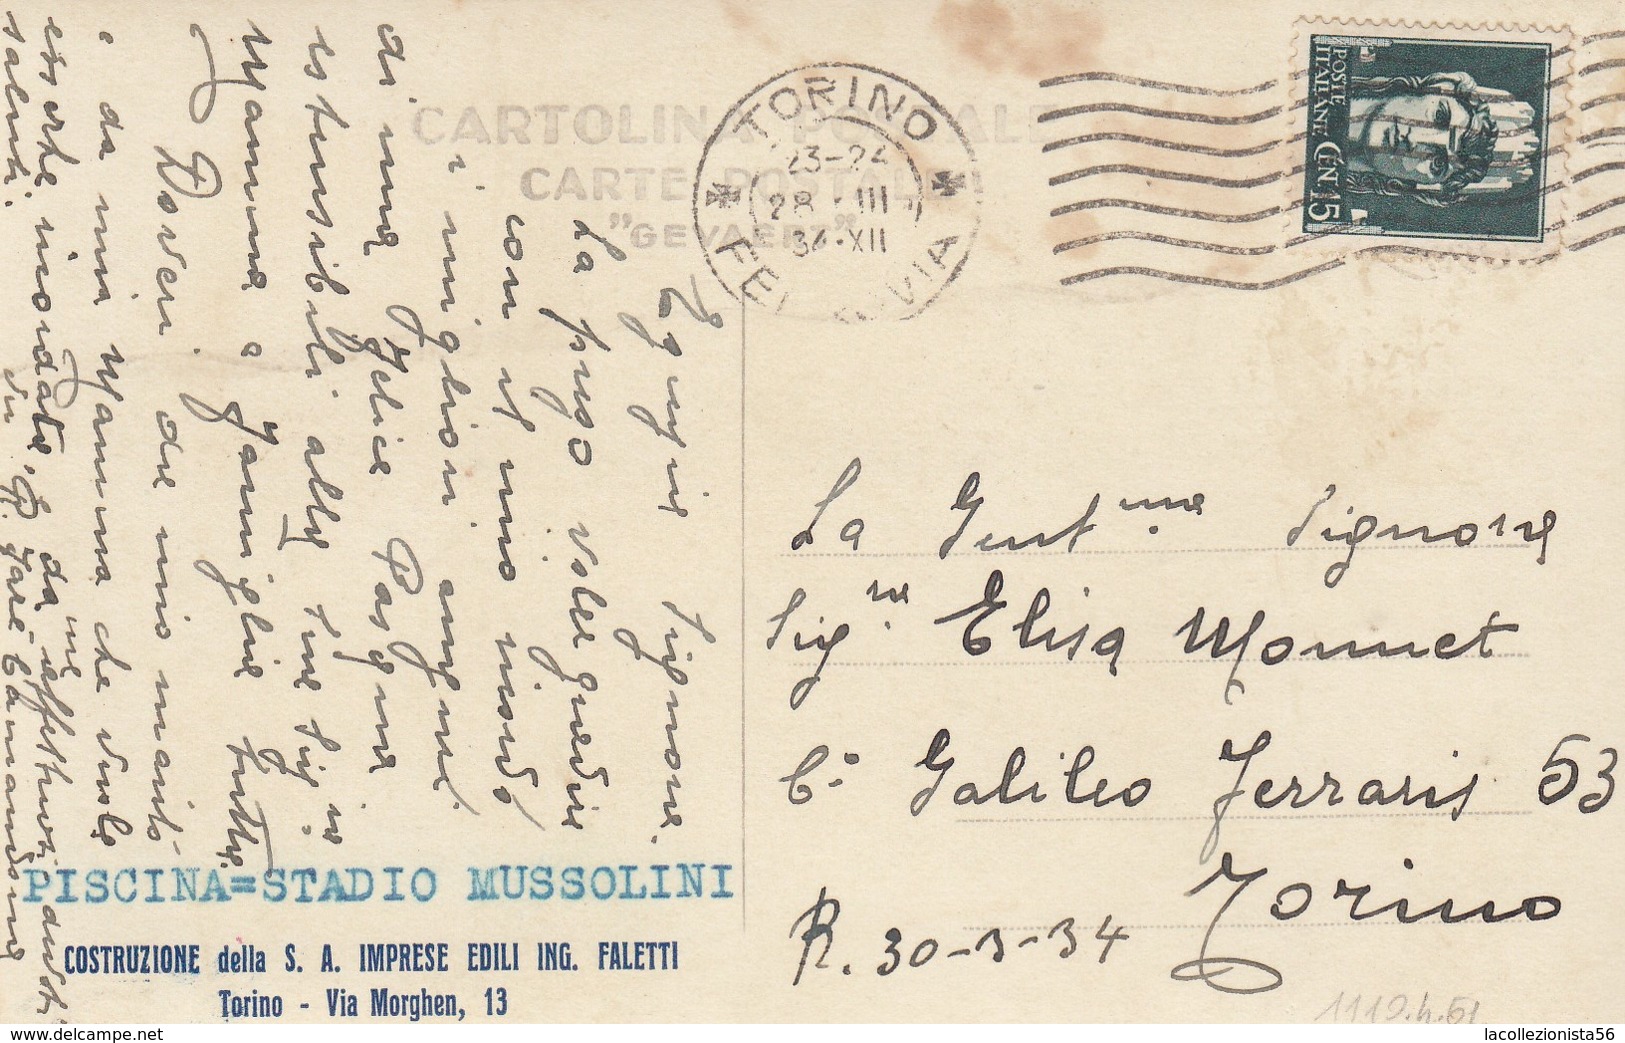 CARTOLINA POSTALE
CARTE POSTALE
"GEVAERT"
TORINO
23-24
28 III
34·XII
FERROVIA
POSTE
ITALIANE
CEN. 15
Egregia Signora.
La prego voler gradire
con il mio miodo
i migliori auguri
di una felice Pasqua
estensibili alla Sua Sig.ra
Mamma e famiglia tutta.
Doveri. da mio marito
e da mia Mamma che vuole
essere ricordata, e da me affettuosi distinti
saluti.
PISCINA=STADIO MUSSOLINI
COSTRUZIONE della S. A. IMPRESE EDILI ING. FALETTI
Torino - Via Morghen, 13
La Gent.ma Signora
Sig.ra Elisa Monnet
C.o Galileo Ferraris 53
Torino
R. 30-3-34
lacollezionista56